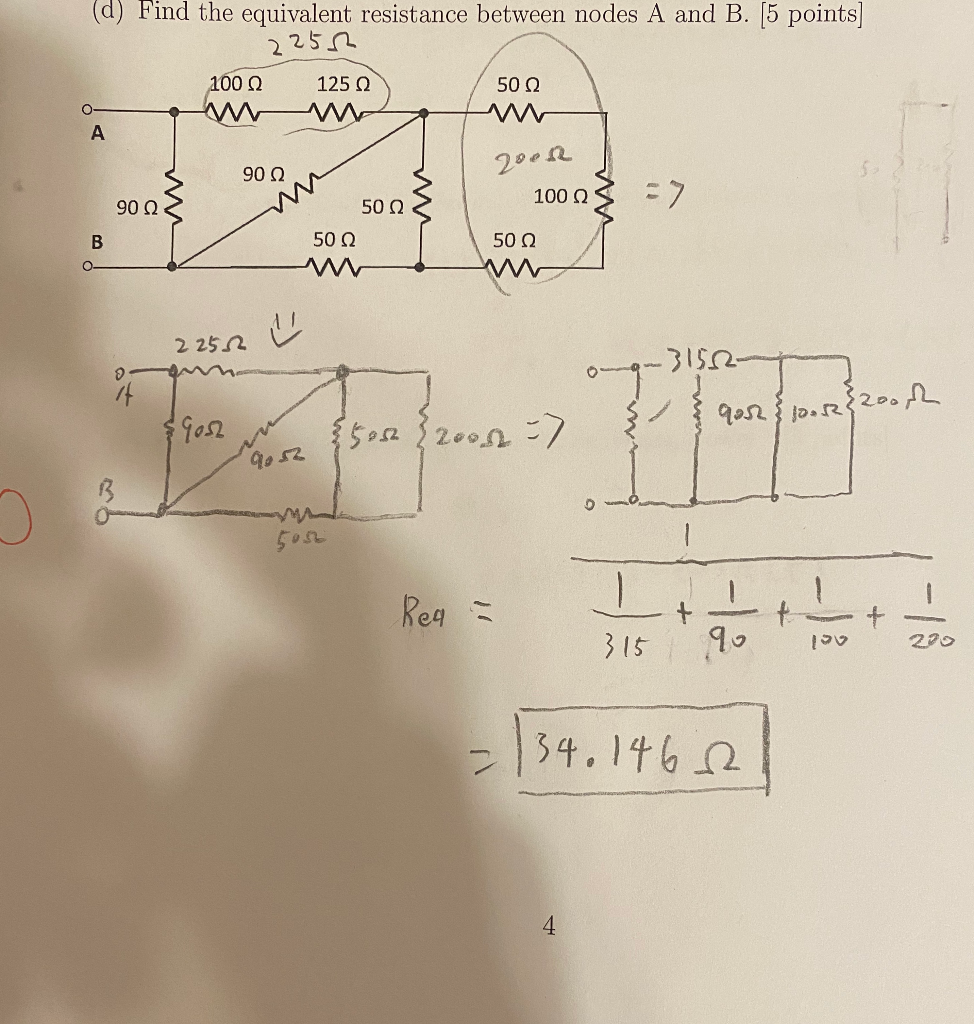 (d) Find the equivalent resistance between nodes A and B. [5 points]
225Ω
100 Ω 125 Ω 50 Ω
A
200Ω
90 Ω
90 Ω 50 Ω 100 Ω =>
B 50 Ω 50 Ω
225Ω
A
315Ω
90Ω 90Ω 50Ω 200Ω => 90Ω 100Ω 200Ω
B
50Ω
Req = 1 / (1/315 + 1/90 + 1/100 + 1/200)
= 34.146 Ω
4